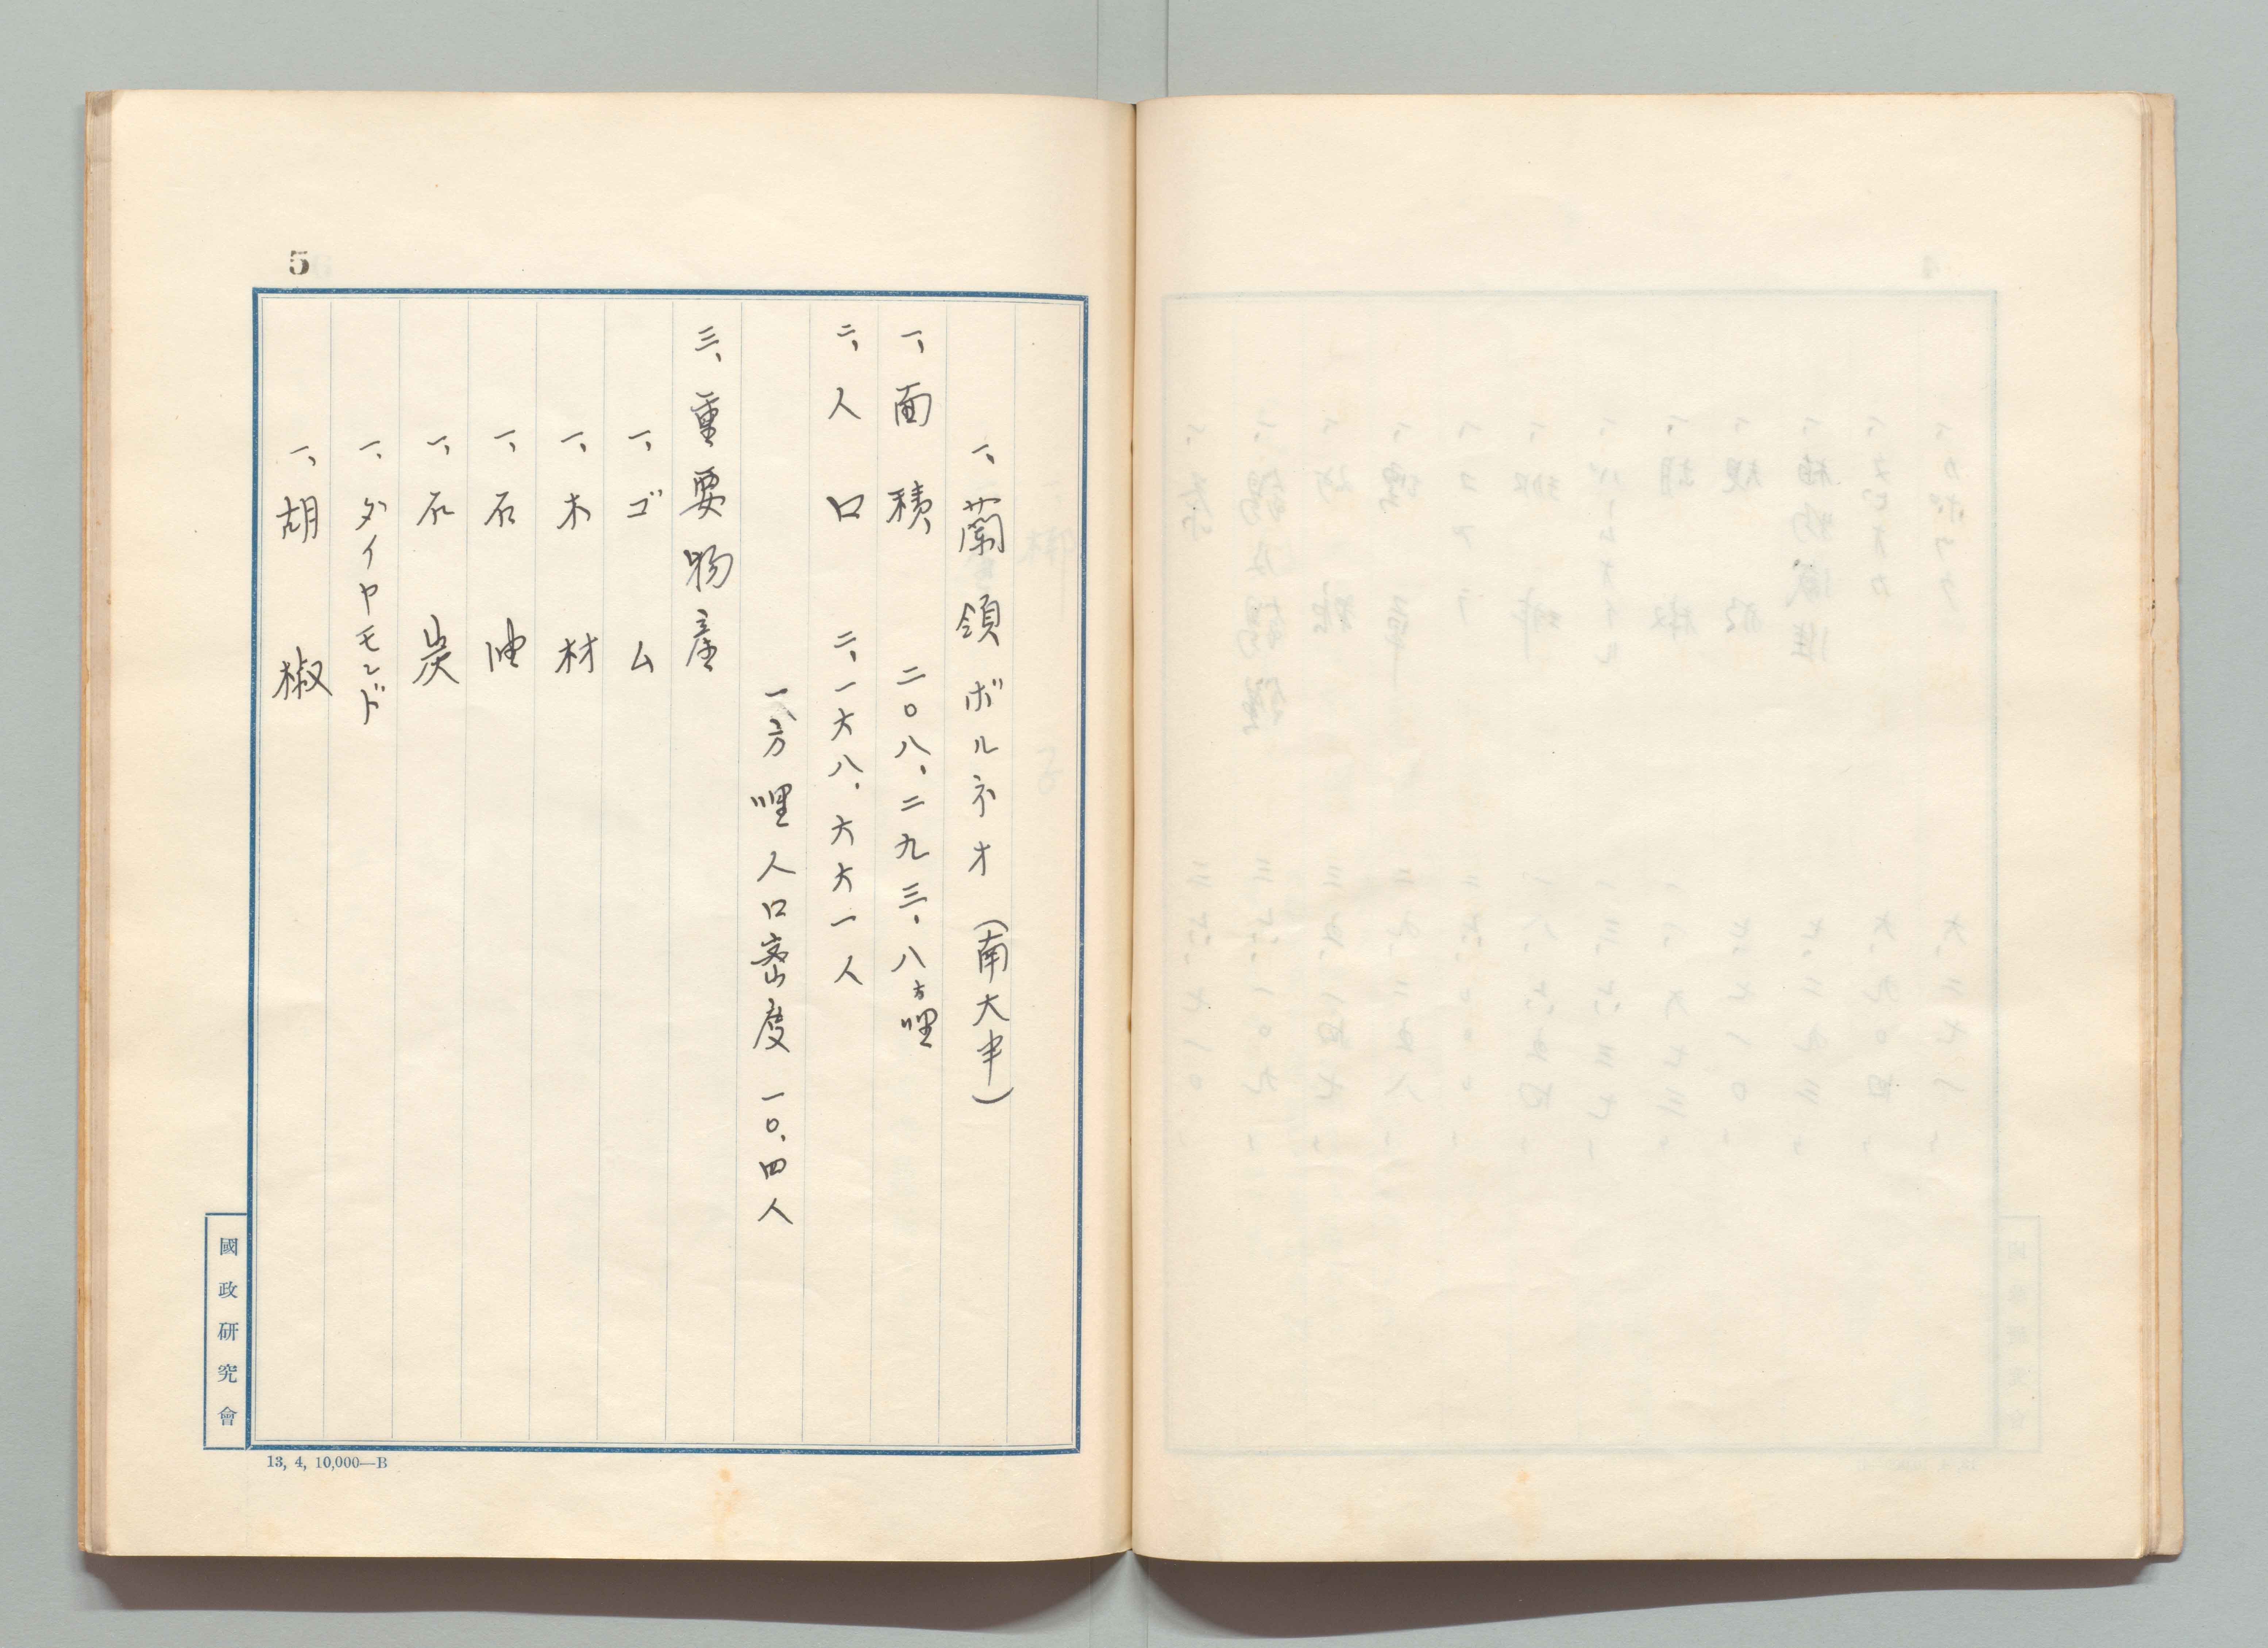 5
一、蘭領ボルネオ（南大半）
一、面積　二〇八、二九三、八方哩
二、人口　二、一六八、六六一人
一方哩人口密度　一〇、四人
三、重要物産
一、ゴム
一、木材
一、石油
一、石炭
一、ダイヤモンド
一、胡椒
國政研究會
13, 4, 10,000—B